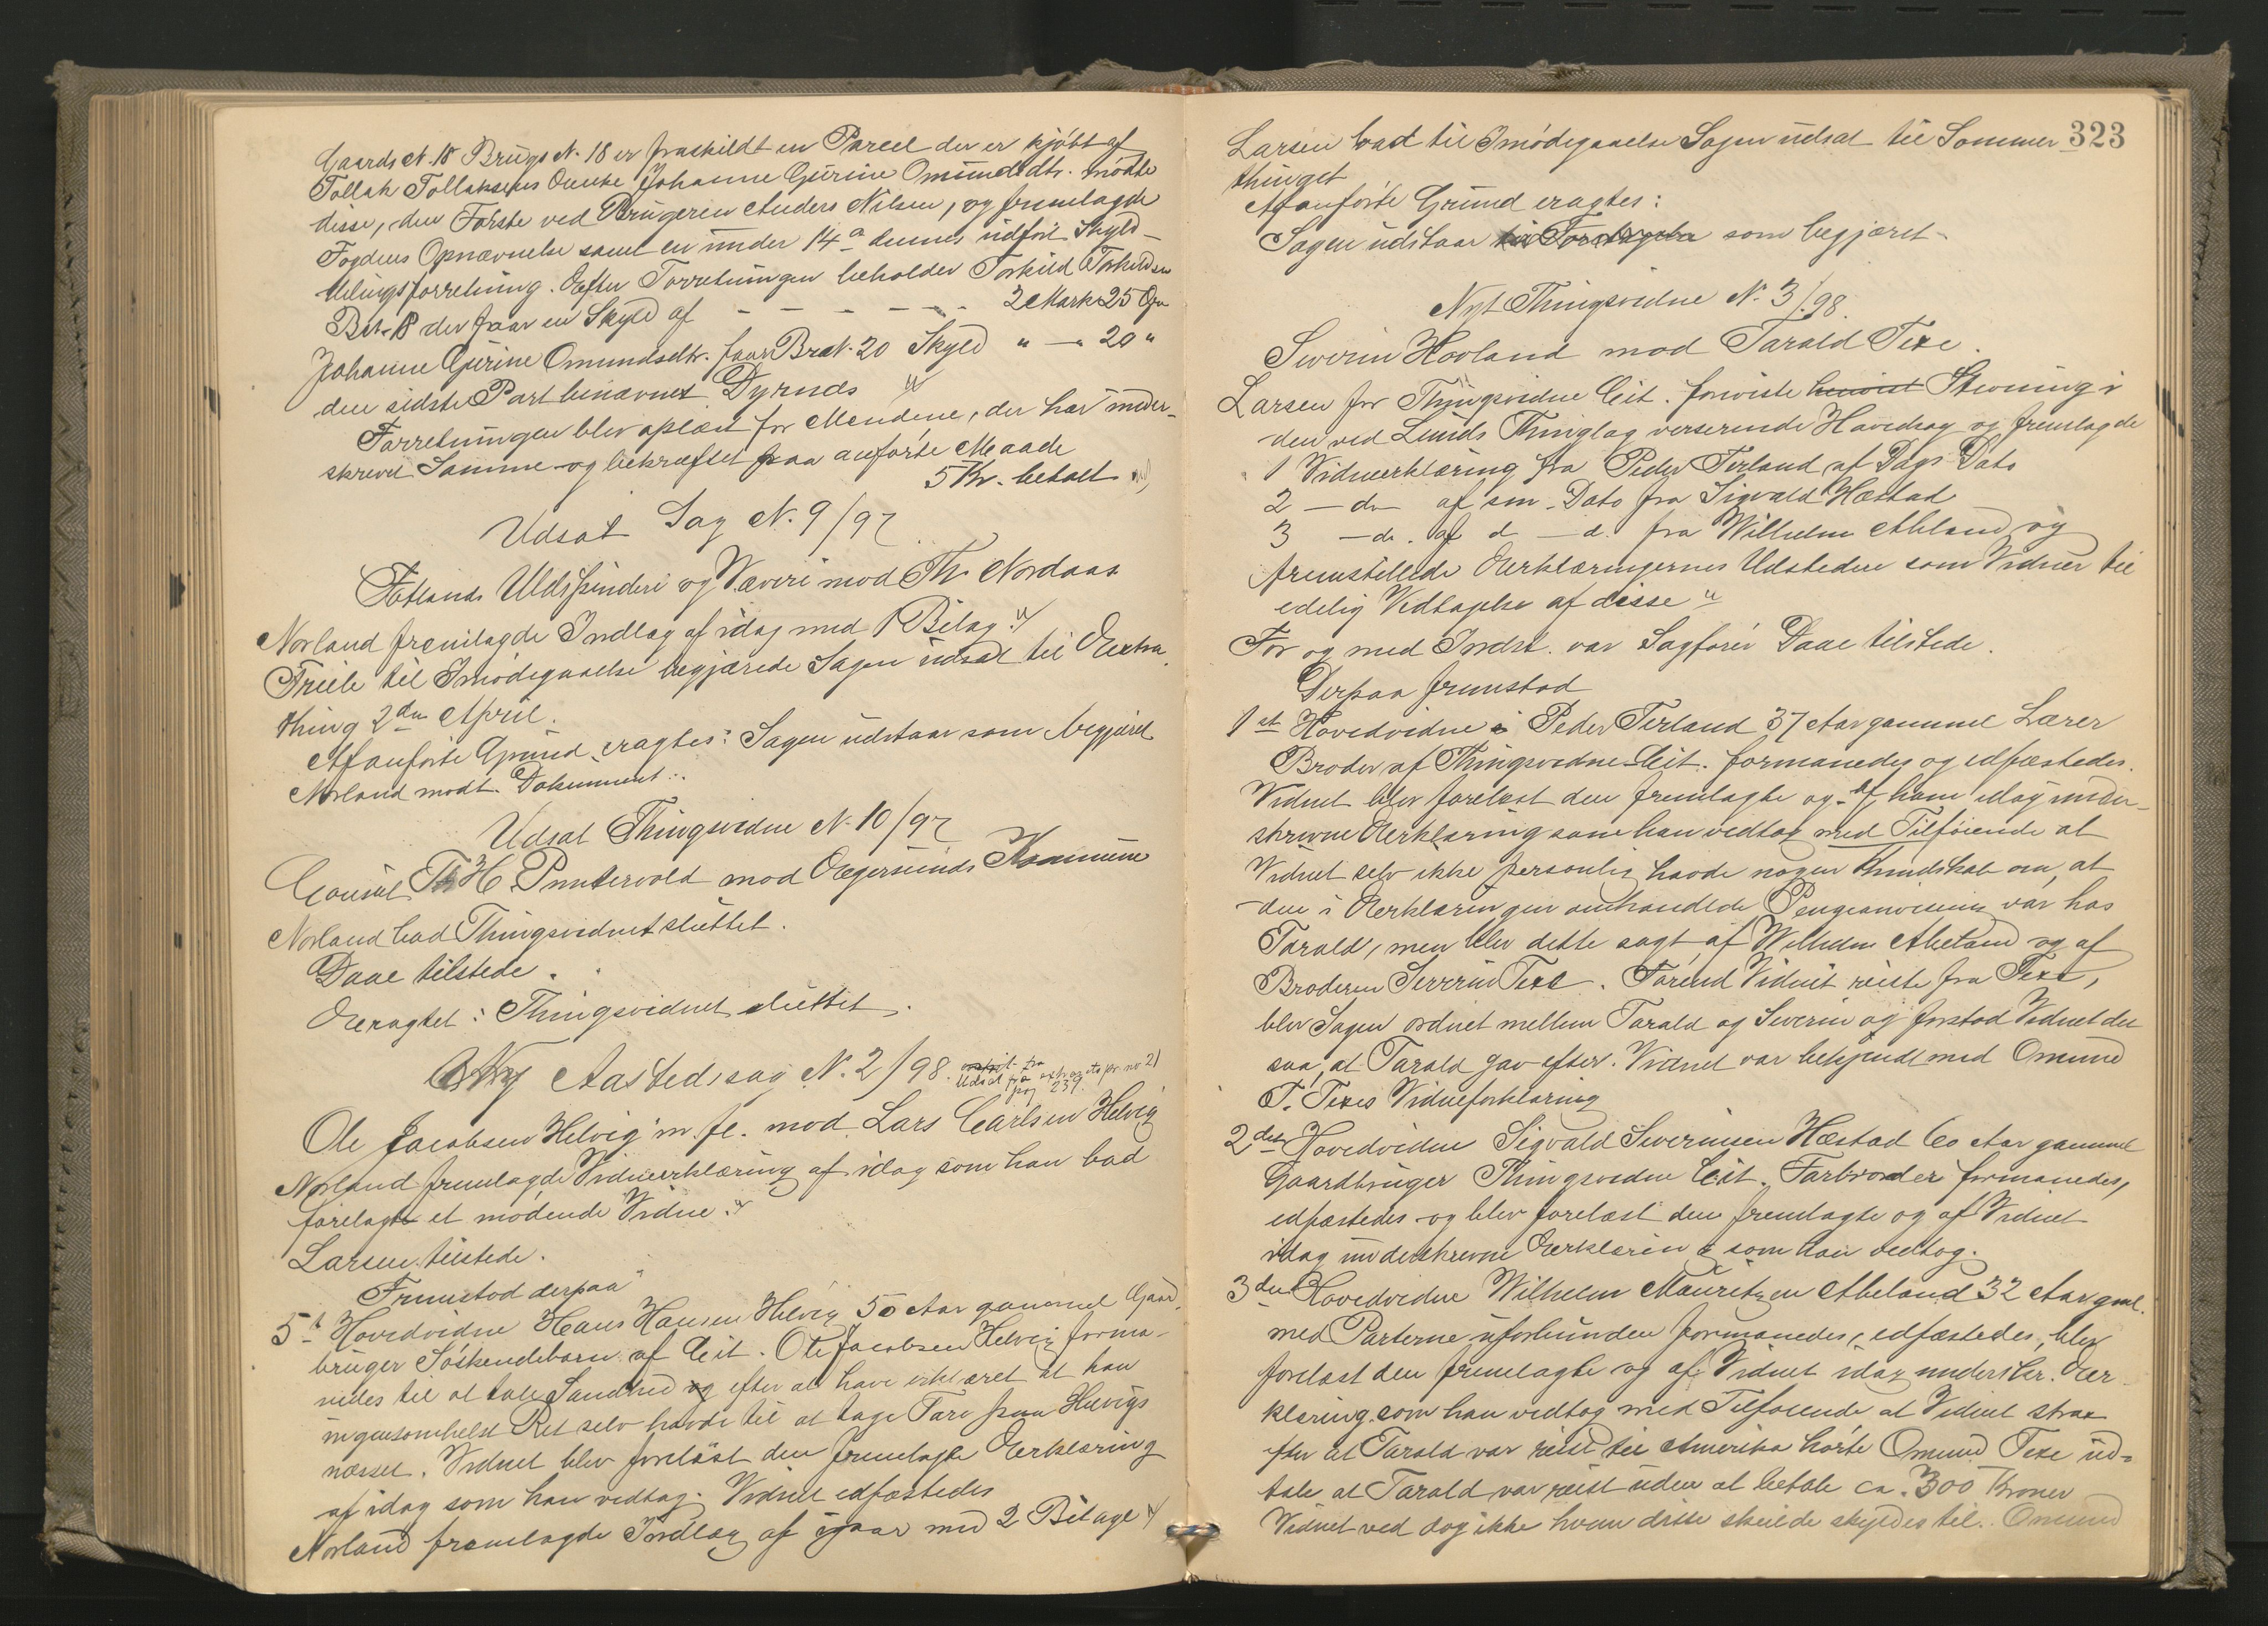 Gaards N. 18 Brugs N. 18 er fraskildt en Parcel der er kjøbt af
Tollak Tollaksens Enke Johanne Gurine Omundsdtr. mødte
disse, den Første ved Brugeren Anders Nilsen, og fremlagde
Fogdens Opnævnelse samt en under 14de dennes udført Skyld-
delingsforretning. Efter Forretningen beholder Torkild Torkildsen
Br.N. 18 der faar en Skyld af - - - - - 2 Mark 25 Øre
Johanne Gurine Omundsdtr. faar Br.N. 20 Skyld " — " 20 "
den sidste Part benævnes Dyrnds
Forretningen blev oplæst for Mændene, der har under-
skrevet Samme og bekræftet paa anførte Maade
5 Kr. betalt
Udsat Sag N. 9/97
Fotlands Uldspinderi og Væveri mod Th. Nordaas
Norland fremlagde Indlag af idag med 1 Bilag
Friele til Imødegaaelse begjærede Sagen udsat til Extra-
thing 2den April.
Af anførte Grund eragtes: Sagen udstaar som begjæret
Norland modt. Dokument.
Udsat Thingsvidne N. 10/97
Consul Th H. Puntervold mod Egersunds Kommune
Norland bad Thingsvidnet sluttet.
Daae tilstede.
Eragtet: Thingsvidnet sluttet.
Ny Aastedssag N. 2/98. Udsat fra extraretspr. no 2)
pag 239.
Ole Jacobsen Helvig m. fl. mod Lars Carlsen Helvig
Norland fremlagde Vidneerklæring af idag som han bad
forelagt et mødende Vidne
Larsen tilstede.
Fremstod derpaa
5te Hovedvidne Hans Hansen Helvig 50 Aar gammel Gaard-
bruger Søskendebarn af Cit. Ole Jacobsen Helvig forma-
nedes til at tale Sandhed og efter at have erklæret at han
ingensomhelst Ret selv havde til at tage Tare paa Helvigs
næsset. Vidnet blev forelæst den fremlagte Erklæring
af idag som han vedtog. Vidnet edfæstedes
Norland fremlagde Indlæg af igaar med 2 Bilage
323
Larsen bad til Imødegaaelse Sagen udsat til Sommer
thinget
Af anførte Grund eragtes:
Sagen udstaar som begjæret.
Nyt Thingsvidne N. 3/98.
Severin Hovland mod Tarald Texe.
Larsen for Thingsvidne Cit. foreviste Stevning i
den ved Lunds Thinglag verserende Hovedsag og fremlagde
1 Vidneerklæring fra Peder Terland af Dags Dato
2 — do af sm. Dato fra Sigvald Hæstad
3 — do. af d — d. fra Wilhelm Abeland og
fremstillede Erklæringernes Udstedere som Vidner til
edelig Vedtagelse af disse
For og med Indst. var Sagfører Daae tilstede.
Derpaa fremstod
1ste Hovedvidne Peder Terland 37 Aar gammel Lærer
Broder af Thingsvidne Cit. formanedes og edfæstedes.
Vidnet blev forelæst den fremlagte og af ham idag under-
skrevne Erklæring som han vedtog med Tilføiende at
Vidnet selv ikke personlig havde nogen Kundskab om, at
den i Erklæringen omhandlede Pengeanvisning var hos
Tarald, men blev dette sagt af Wilhelm Abeland og af
Broderen Severin Texe. Førend Vidnet reiste fra Texe,
blev Sagen ordnet mellem Tarald og Severin og forstod Vidnet det
saa, at Tarald gav efter. Vidnet var bekjendt med Omund
T. Texes Vidneforklaring
2det Hovedvidne Sigvald Severinsen Hæstad 60 Aar gammel
Gaardbruger Thingsvidne Cit. Farbroder formanedes,
edfæstedes og blev forelæst den fremlagte og af Vidnet
idag underskrevne Erklæring som han vedtog.
3die Hovedvidne Wilhelm Mauritzen Abeland 32 Aar gml.
med Parterne uforbunden formanedes, edfæstedes, blev
forelæst den fremlagte og af Vidnet idag underskr. Er-
klæring som han vedtog med Tilføiende at Vidnet strax
efter at Tarald var reist til Amerika hørte Omund Texe ud-
tale at Tarald var reist uden at betale ca. 300 Kroner
Vidnet ved dog ikke hvem disse skulde skyldes til. Omund